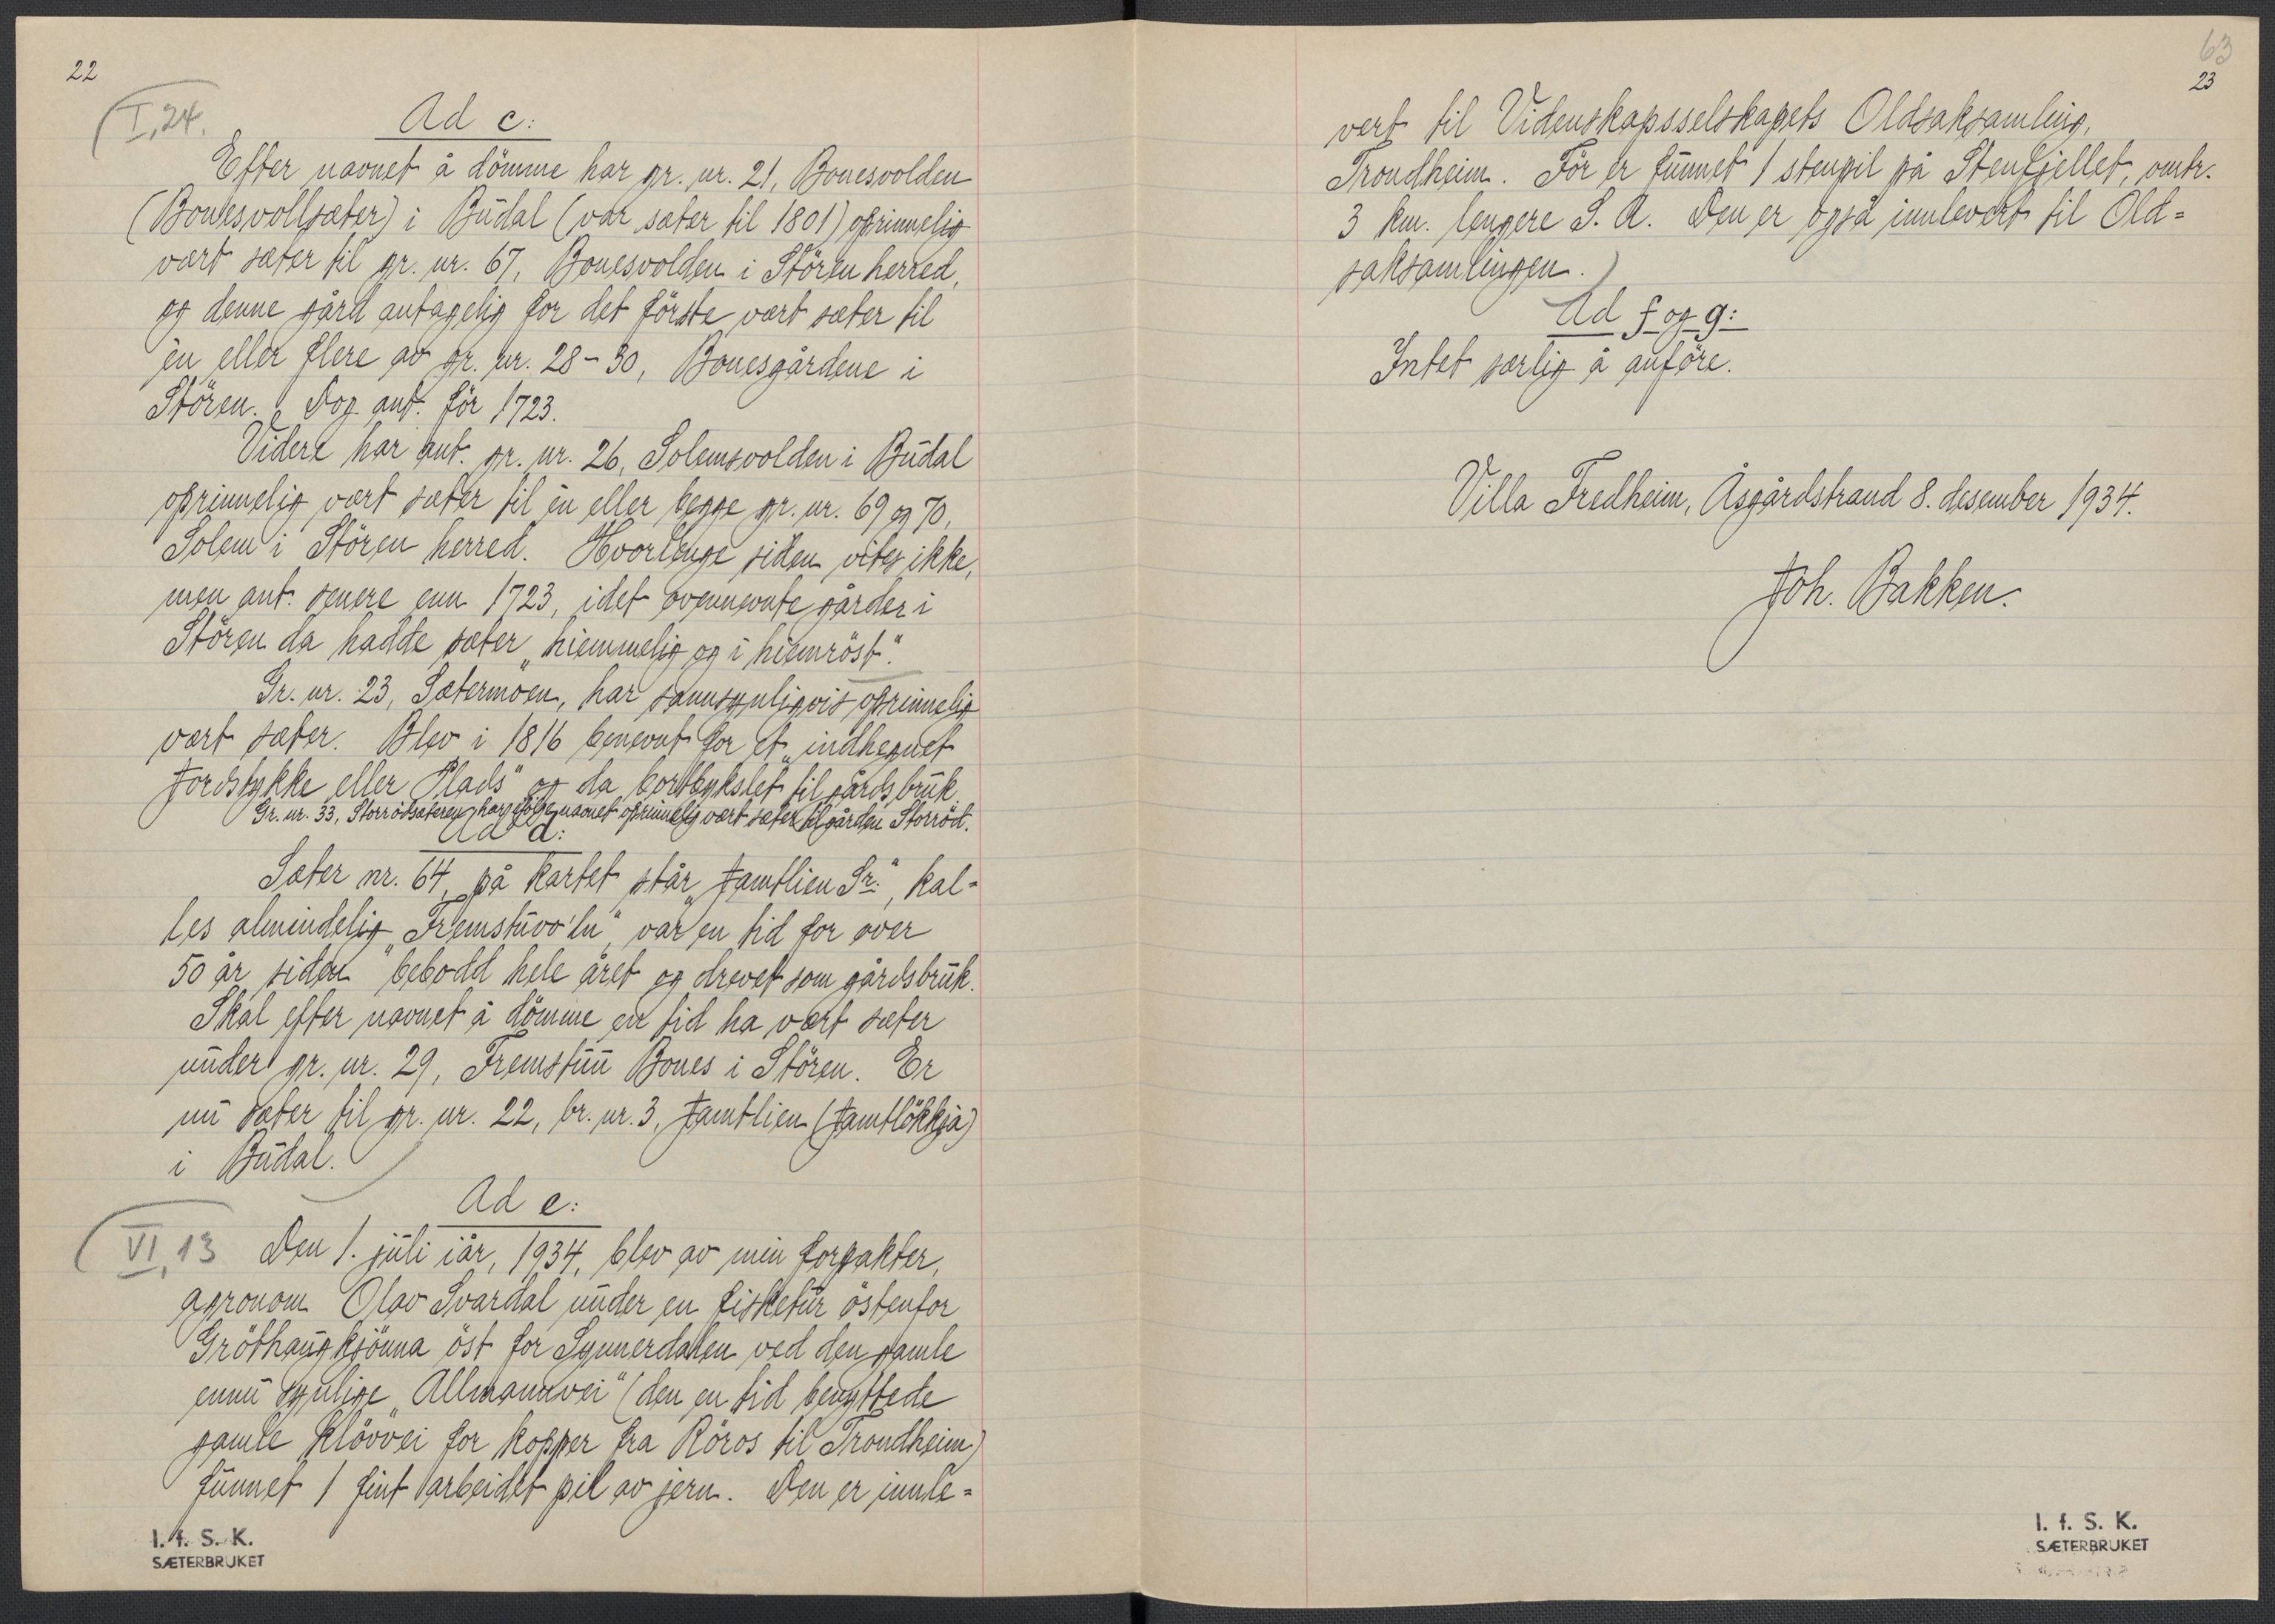 22
I, 24.
Ad c:
Efter navnet å dömme har gr. nr. 21, Bonesvolden
(Bonesvollsæter) i Budal (var sæter til 1801) oprinnelig
vært sæter til gr. nr. 67, Bonesvolden i Stören herred,
og denne gård antagelig for det förste vært sæter til
én eller flere av gr. nr. 28-30, Bonesgårdene i
Stören. Dog ant. för 1723.
Videre har ant. gr. nr. 26, Solemsvolden i Budal
oprinnelig vært sæter til én eller begge gr. nr. 69 og 70,
Solem i Stören herred. Hvorlenge siden vites ikke,
men ant. senere enn 1723, idet ovennevnte gårder i
Stören da hadde sæter „hiemmelig og i hiemröst".
Gr. nr. 23, Sætermoen, har sannsynligvis oprinnelig
vært sæter. Blev i 1816 benevnt for et „indhegnet
Jordstykke eller Plads" og da bortbykslet til gårdsbruk.
Gr. nr. 33, Storrödsæteren, har ifölge navnet oprinnelig vært sæter til gården Storröd.
Ad d:
Sæter nr. 64, på kartet står „Jamtlien Sr.", kal=
les almindelig „Fremstuvo'ln", var en tid for over
50 år siden bebodd hele året og drevet som gårdsbruk.
Skal efter navnet å dömme en tid ha vært sæter
under gr. nr. 29, Fremstuu Bones i Stören. Er
nu sæter til gr. nr. 22, br. nr. 3, Jamtlien (Jamtlökkja)
i Budal.
Ad e:
VI, 13 Den 1. juli iår, 1934, blev av min forpakter,
agronom Olav Svardal under en fisketur östenfor
Gröthaugkjönna öst for Synnerdalen ved den gamle
ennu synlige „Allmannvei" (den en tid benyttede
gamle klövvei for kopper fra Röros til Trondheim)
funnet 1 fint arbeidet pil av jern. Den er innle=
I. f. S. K.
SÆTERBRUKET
63
23
vert til Videnskapsselskapets Oldsaksamling,
Trondheim. För er funnet 1 stenpil på Stenfjellet, omtr.
3 km. lengere S. A. Den er også innlevert til Old=
saksamlingen.
Ad f og g:
Intet særlig å anföre.
Villa Fredheim, Åsgårdstrand 8. desember 1934.
Joh. Bakken.
I. f. S. K.
SÆTERBRUKET